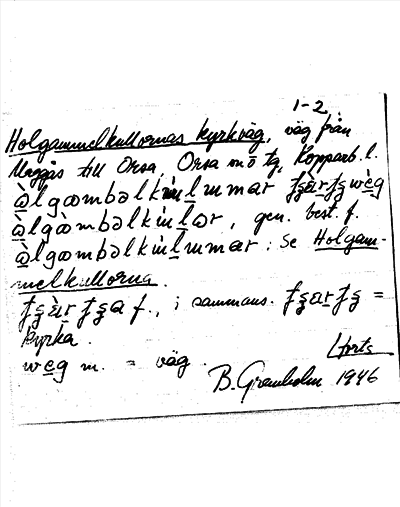 1-2
Holgammelkullornas kyrkväg, väg från
Maggås till Orsa, Orsa sn o tg, Kopparb. l.
àlgœmbəlkùlummar wèg
àlgœmbəlkùlər, gen. best. f.
àlgœmbəlkùlummar: Se Holgam-
melkullorna.
f., i sammans. =
kyrka.
weg m. = väg.
Horts
B. Granholm 1946